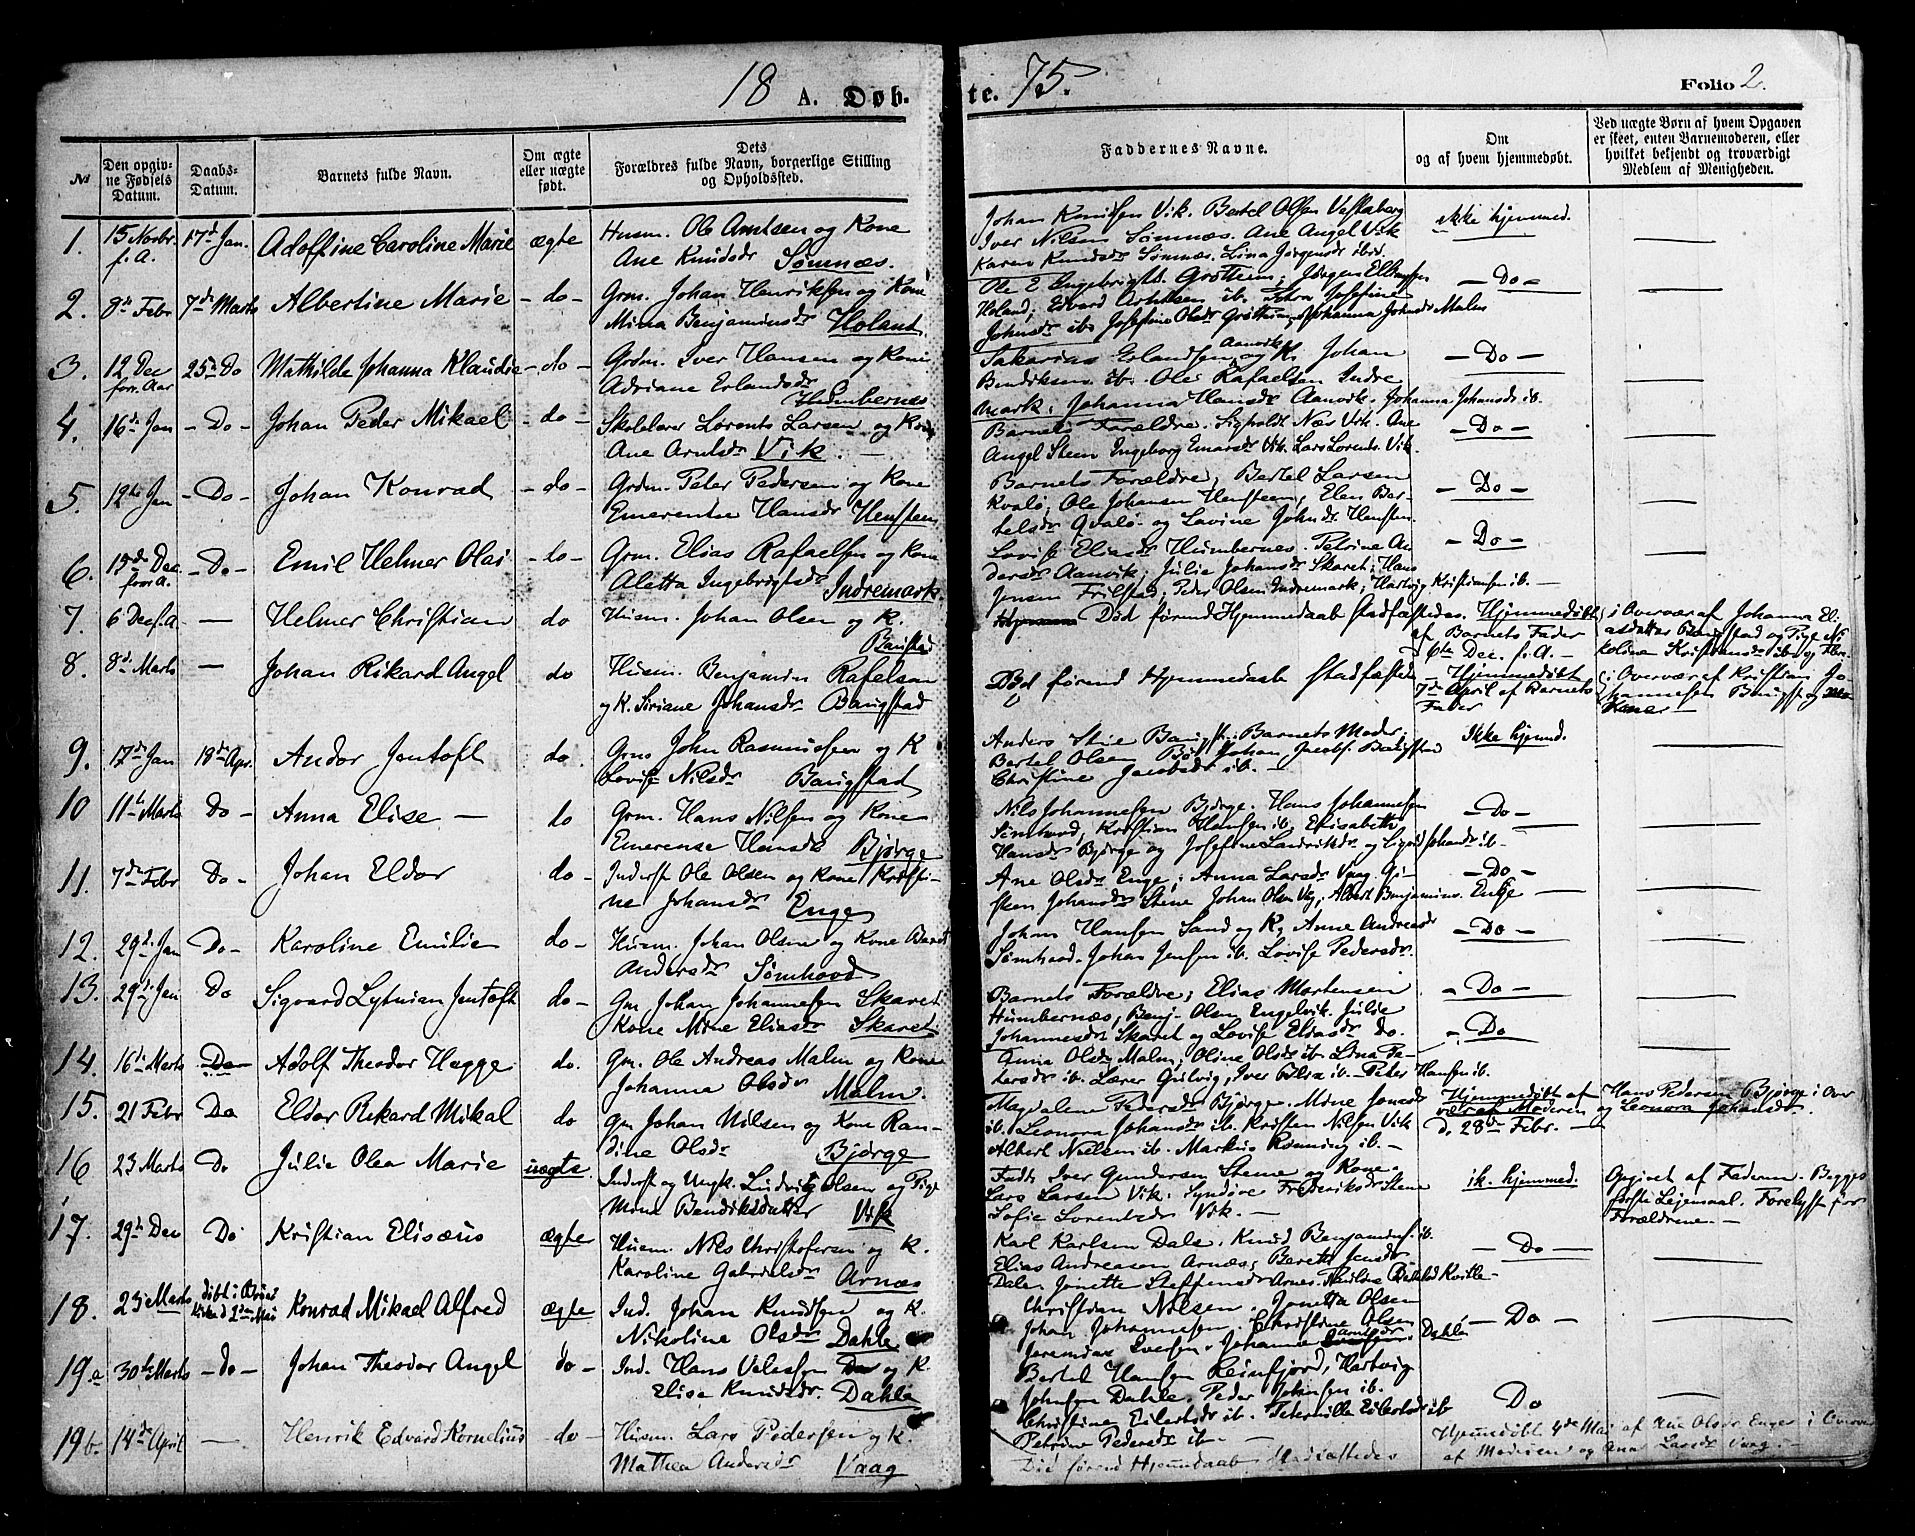 18 A. Døb-
te. 75.
Folio 2.
No
Den opgiv-
ne Fødsels
Datum.
Daabs-
Datum.
Barnets fulde Navn.
Om ægte
eller uægte
født.
Dets
Forældres fulde Navn, borgerlige Stilling
og Opholdssted.
Faddernes Navne.
Om
og af hvem hjemmedøbt.
Ved uægte Børn af hvem Opgaven
er skeet, enten Barnemoderen, eller
hvilket bekjendt og troværdigt
Medlem af Menigheden.
1. 15 Novbr. f. A. 17d Jan. Adolfine Caroline Marie ægte
Husm. Ole Arntsen og Kone
Ane Knudsdr Sømnæs.
Johan Knudsen Vik. Bertel Olsen
Iver Nilsen Sømnæs. Ane Angel Vik
Karen Knudsdr Sømnæs. Lina Jørgensdr ibid.
ikke hjemmed.
2. 8de Febr 7de Marts Albertine Marie - do -
Grm. Johan Henriksen og Kone
Mina Benjaminsdr Holand
Ole E Engebrigts. Grøttheim; Jørgen
Holand; Edvard ib. Petra Josefine
Johnsdr ib. Josefine Olsdr Johanna Johnsdr Malm
- Do -
3. 12 Dec forr. Aar 25de Do Mathilde Johanna Klaudie - do -
Grdm. Iver Hansen og Kone
Adriane Erlandsdr
Humbernes
Sakarias Erlandsen Aanvik og K. Johan
Bendiksen ib. Ole Rafaelsen Indre
mark. Johanna Hansdr Aanvik. Johanna Johansdr ib.
- Do -
4. 16de Jan - Do - Johan Peder Mikael - do -
Skolelærer Lorents Larsen og Kone
Ane Arntsdr Vik. -
Barnets Forældre. Sigvaldt Næs Vik. Ane
Angel Steen Engeborg Vik. Lars Lorents. Vik.
- Do -
5. 12te Jan - Do - Johan Konrad - do -
Grdm. Peter Pedersen og Kone
Emerentse Hansdr Hensteen
Barnets Forældre; Bertel Larsen
Kvalø; Ole Johansen Hensteen; Elen Ber-
telsdr Qvalø og Lavine Johnsdr Hensten
- Do -
6. 15de Dec. forr. A. - Do - Emil Helmer Olai - do -
Grm. Elias Rafaelsen og Kone
Aletta Ingebrigtsdr Indremark.
Lovise Eliasdr Humbernes. Petrine An
dersdr Aanvik; Julie Johansdr Skaret; Hans
Jensen Frilstad; Peder Olsen Indremark; Hartvig Kristiansen ib. -
- Do -
7. 6 Dec f. A. - Helmer Christian do
Husm. Johan Olsen og K.
Bangstad
Død førend Hjemmedaab stadfæstedes. Hjemmedøbt
af Barnets Fader
6te Dec. f. A.
i Overvær af Johanna Eli
asdatter Bangstad og Pige Ni
koline Kristiansdr ib
8. 8d. Marts - Johan Rikard Angel do
Husm. Benjamin Rafelsen
og K. Siriane Johansdr Bangstad
Død førend Hjemmedaab stadfæstedes
Hjemmedøbt
7de April af Barnets
Fader
i Overvær af Kristian Jo-
hannesen Bangst. og
Koner -
9. 17de Jan 18de Apr. Andor Jentoft do.
Grm John Rasmussen og K
Lovise Nilsdr Bangstad
Anders Stie Bangst; Barnets Moder;
Bertel Olsen Johan Jacobs. Bangstad
Christine Jacobsdr ib. -
Ikke hjemmd.
10 11te Marts Do - Anna Elise - do
Grm. Hans Nilsen og Kone
Emerense Hansdr Bjørge
Nils Johannesen Bjørge. Hans Johannesen
Sømhovd; Kristian Hansen ib. Elisabeth
Hansdr Bjørge og Josefine og Johansdr ib -
- Do -
11. 7de Febr Do - Johan Eldor do -
Inderst Ole Olsen og Kone Kristi-
ne Johansdr Enge
Ane Olsdr Enge; Anna Larsdr Vaag. Gi-
sken Johansdr Stene Johan Olsen Albert Benjamins. Enge
- Do -
12. 29d. Jan Do - Karoline Emilie do -
Husm. Johan Olsen og Kone Beret
Andersdr Sømhovd
Johan Hansen Sand og K, Anne Andreasdr
Sømhovd. Johan Jensen ib. Lovise Pedersdr.
- Do -
13. 29d. Jan Do Sigvard Lytnian Jentoft do -
Gm Johan Johannesen Skaret
Kone Mine Eliasdr Skaret.
Barnets Forældre; Elias Mortensen
Humbernæs, Benj. Olsen Engelvik. Julie
Johannesdr Skaret og Lovise Eliasdr do.
- Do -
14. 16de Marts Do Adolf Theodor Hegge do.
Gm. Ole Andreas Malm og Kone
Johanna Olsdr Malm.
Anna Olsdr Malm; Oline Olsdr ib. Lina Pe-
tersdr ib. Lærer Gulvig; Iver Olsen ib - Peter Hansen ib.
- Do
15. 21 Febr Do Eldor Rikard Mikal do
Gm Johan Nilsen og Kone Ran-
dine Olsdr Bjørge
Magdalena Pedersdr Bjørge. Mine Jonsdr
ib. Leonora Johansdr ib. Kristen Nilsen Vik
Albert Nielsen ib. Markus Rønning ib. -
Hjemmedøbt af
Hans Pedersen Bjørge i Over
vær af Moderen og Leonora Johansdr.
d. 28de Febr. -
16 23 Marts Do Julie Olea Marie uægte
Inderst og Ungk. Ludvig Olsen og Pige
Mine Bendiksdatter Vik
Fadd. Iver Gundersen Stene og Kone.
Lars Larsen Vik. Syndøve Frederiksdr Stene
Sofie Lorentsdr Vik. -
ik. hjemmed.
Opgivet af Faderen. Begges
første Leiermaal. Forelyst for
Forældrene. -
17. 29de Dec Do Kristian Elisæus ægte
Husm. Nils Christofersen og K.
Karoline Gabrielsdr Arnæs
Karl Karlsen Dale. Knud Benjamins. ib.
Elias Andreasen Arnæs; Bereth Jensdr
Dale. Jonette Steffensdr Arnes.
- Do -
18. 23 Marts døbt i Kirke 2den Mai Konrad Mikael Alfred ægte
Ind. Johan Knudsen og K.
Nikoline Olsdr Dahle
Christian Nilsen. Jonetta Olsen
Johan Johannesen. Christine Olsen
Jeremias Iversen. Johanna Dahle
- Do -
19a 30te Marts - Do - Johan Theodor Angel do -
Ind. Hans og K.
Elise Knudsdr. Dahle
Bertel Hansen Reinfjord, Hartvig
Johnsen Dahle. Peder Johnsen ib.
Christine Eilertsdr ib. Eilertsdr ib
Petrine Pedersdr ib. -
Do
19b 14de April - Henrik Edvard Kornelius - do -
Husm. Lars Pedersen og K.
Mathea Andersdr Vaag
Død førend Hjemmedaab stadfæstedes
Hjemmedøbt 4de Mai af Ane Olsdr Enge i Overvær
af Moderen og Ane Larsdr Vaag. -